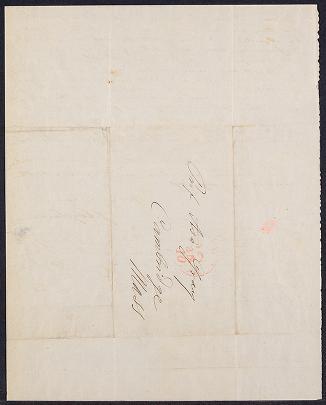 Prof Asa Gray
Cambridge
Mass